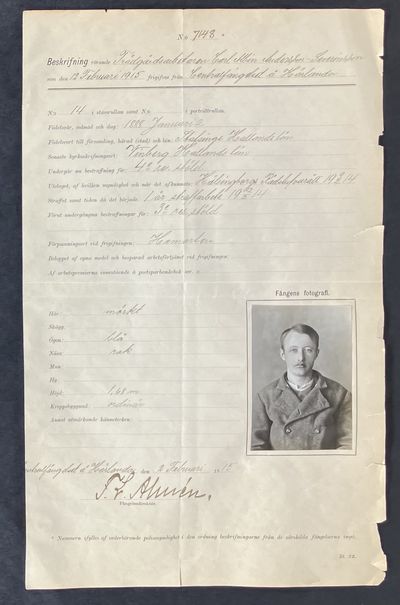 No 7143.
Beskrifning rörande Trädgårdsarbetaren Carl Albin Andersson
som den 12 Februari 1915 frigifven från Centralfängelset å Härlanda
N:o 14 i stamrullan samt N:o i porträttrullan.
Födelseår, månad och dag: 1888 Januari 2
Födelseort till församling, härad (stad) och län: Hallands län
Senaste kyrkskrifningsort: Vinberg Hallands län
Undergår nu bestraffning för: 4:e res. stöld
Utslaget, af hvilken myndighet och när det afkunnats: Helsingborgs Rådstufvurätt 14
Straffet samt tiden då det började: 1 år straffarbete 14
Först undergångna bestraffningar för: 3:e res. stöld
Förpassningsort vid frigifningen:
Beloppet af egna medel och besparad arbetsförtjänst vid frigifningen:
Af arbetspremierna innestående å postsparbanksbok
Fångens fotografi.
Hår: mörkt
Skägg:
Ögon: blå
Näsa: rak
Mun:
Hy:
Höjd: 1,68 m
Kroppsbyggnad: ordinär
Annat utmärkande kännetecken:
Centralfängelset å Härlanda den 2 Februari 1915
Fängelsedirektör.
* Nummern ifylles af vederbörande polismyndighet i den ordning beskrifningarna från de särskilda fängelserna ingå.